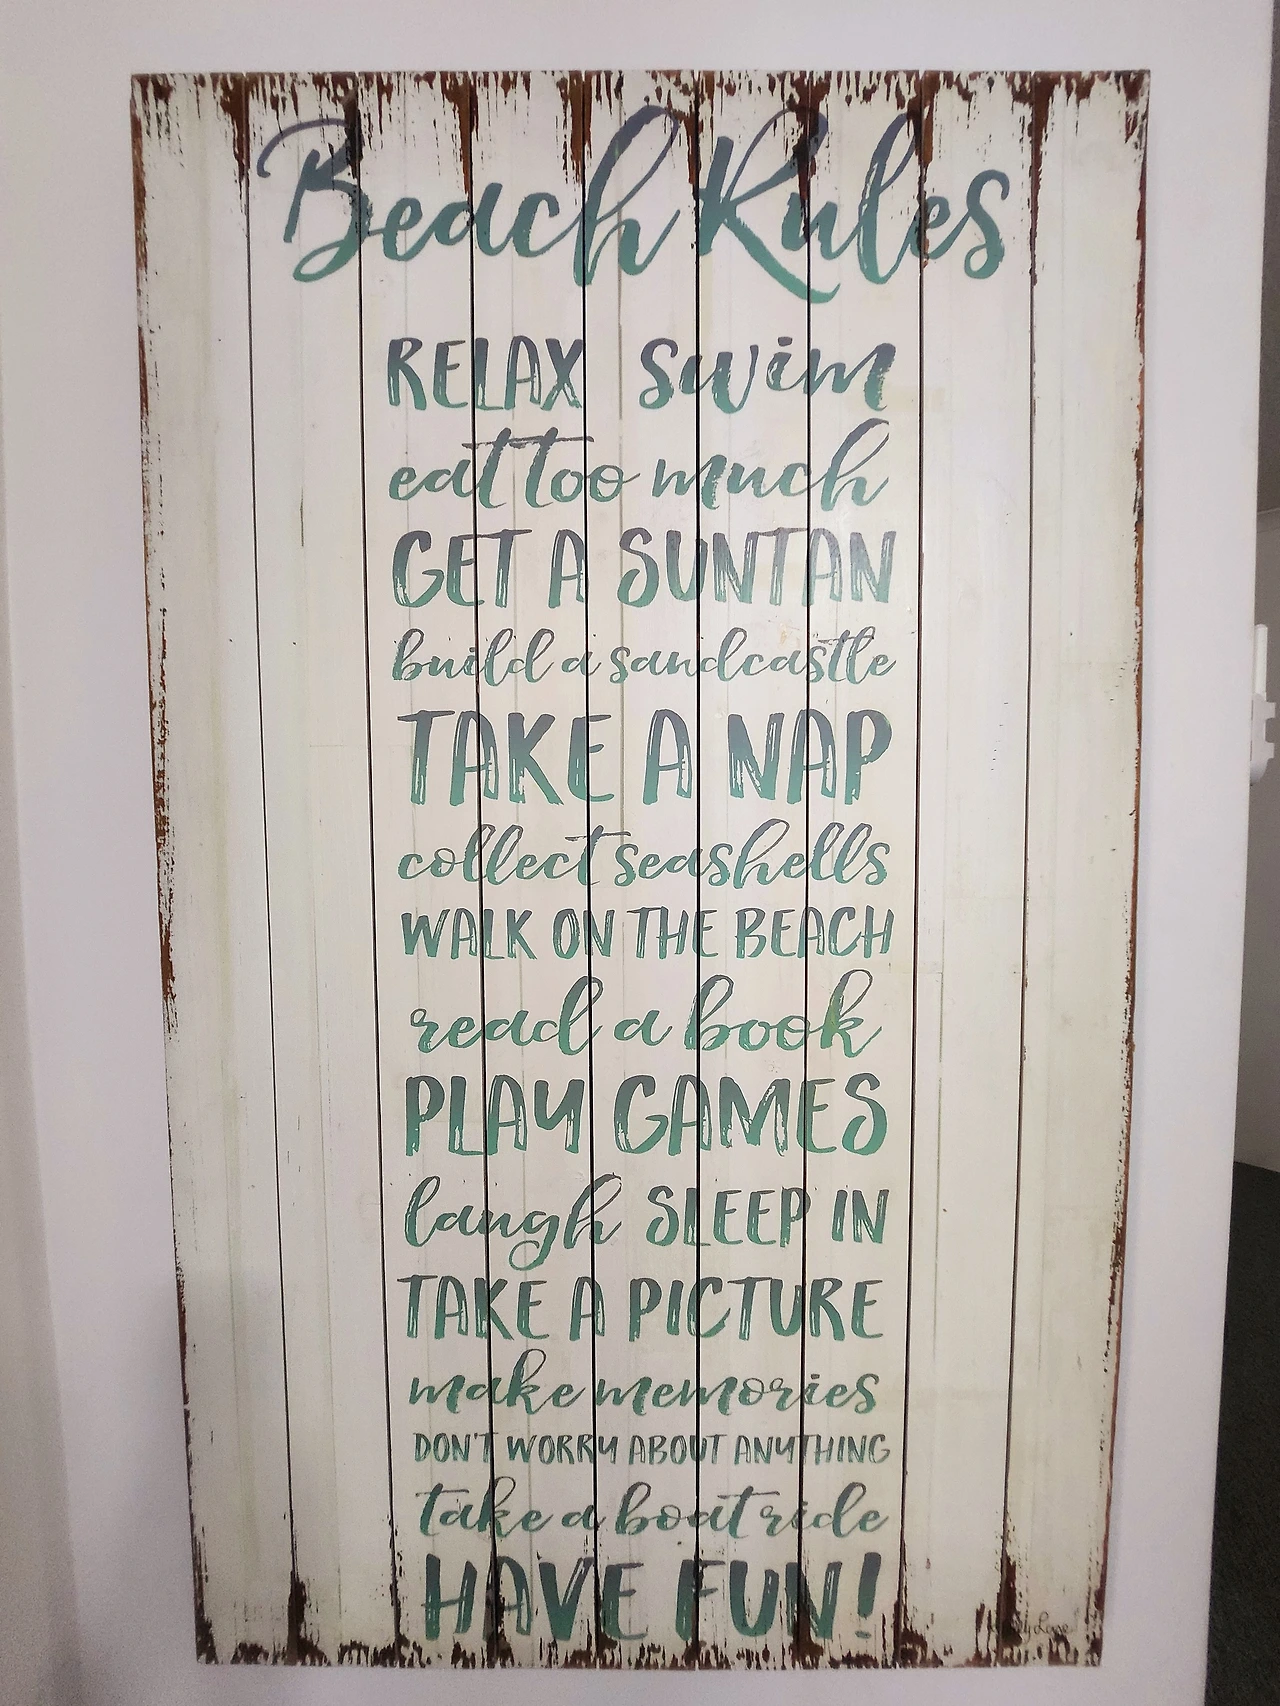 Beach Rules
RELAX swim
eat too much
GET A SUNTAN
build a sandcastle
TAKE A NAP
collect seashells
WALK ON THE BEACH
read a book
PLAY GAMES
laugh SLEEP IN
TAKE A PICTURE
make memories
DON'T WORRY ABOUT ANYTHING
take a boat ride
HAVE FUN!